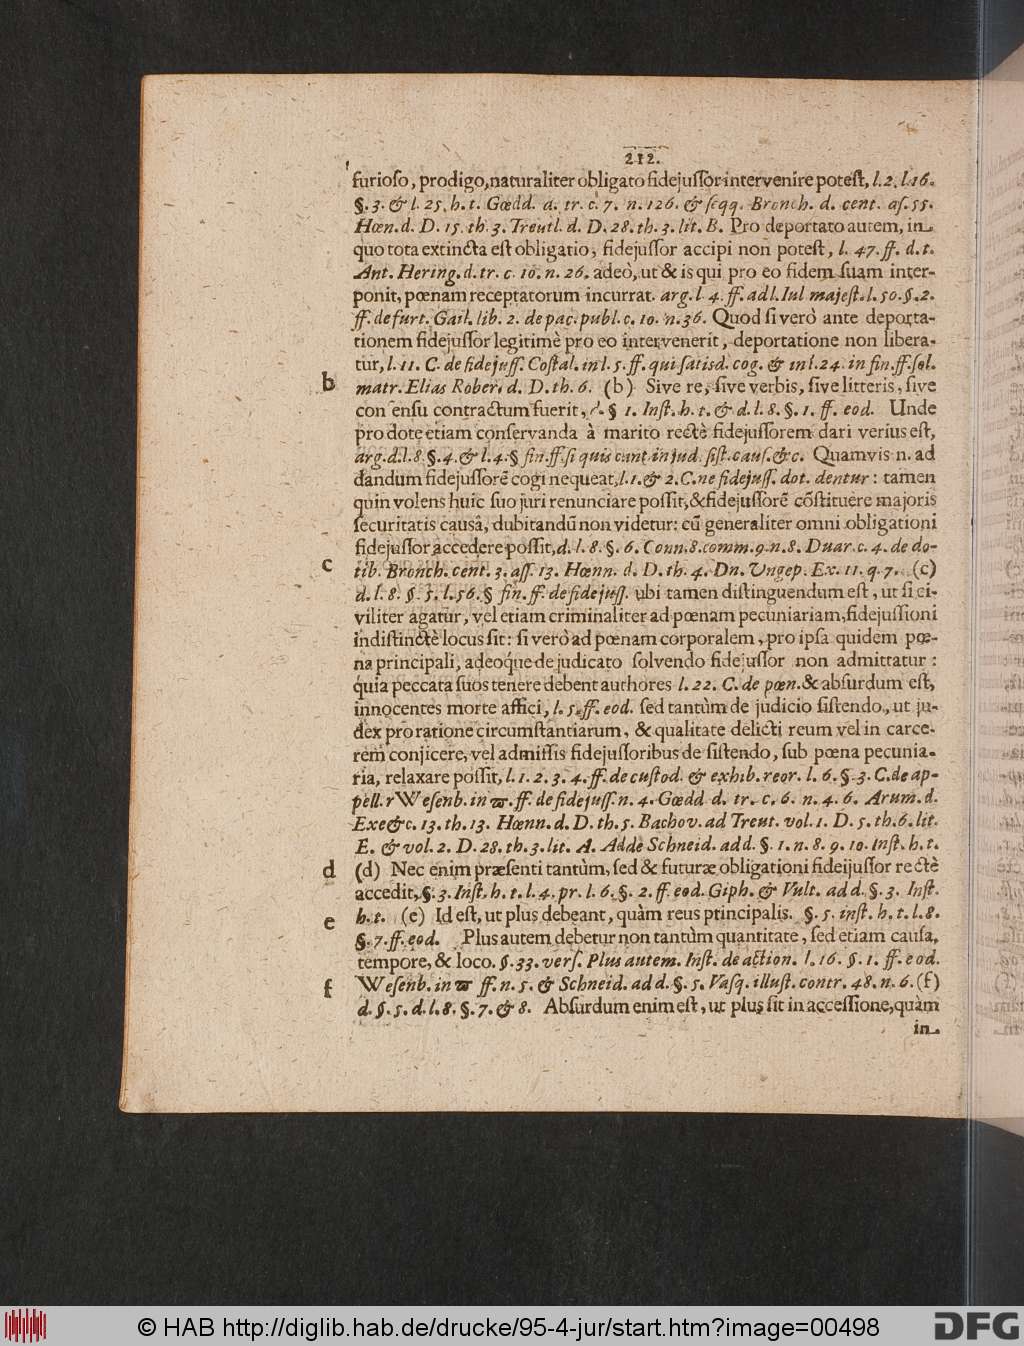 212.
furioso, prodigo, naturaliter obligato fidejussor intervenire potest, l. 2. l. 16.
§. 3. & l. 25. h. t. Gœdd. d. tr. c. 7. n. 126. & seqq. Bronch. d. cent. as. 55.
Hœn. d. D. 15. th. 3. Treutl. d. D. 28. th. 3. lit. B. Pro deportato autem, in-
quo tota extincta est obligatio, fidejussor accipi non potest, l. 47. ff. d. t.
Ant. Hering. d. tr. c. 10. n. 26. adeò, ut & is qui pro eo fidem suam inter-
ponit, pœnam receptatorum incurrat. arg. l 4. ff. ad l. Iul majest. l. 50. §. 2.
ff. de furt. Gail. lib. 2. de pac. publ. c. 10. n. 36. Quod si verò ante deporta-
tionem fidejussor legitimè pro eo intervenerit, deportatione non libera-
tur, l. 11. C. de fidejuss. Costal. in l. 5. ff. qui satisd. cog. & in l. 24. in fin. ff. sol.
b matr. Elias Rober. d. D. th. 6. (b) Sive re, sive verbis, sive litteris, sive
con ensu contractum fuerit, d. § 1. Inst. h. t. & d. l. 8. §. 1. ff. eod. Unde
pro dote etiam conservanda à marito rectè fidejussorem dari verius est,
arg. d. l. 8. §. 4. & l. 4. § fin. ff. si quis caut. in jud. sist. caus. &c. Quamvis n. ad
dandum fidejussorē cogi nequeat, l. 1. & 2. C. ne fidejuss. dot. dentur: tamen
quin volens huic suo juri renunciare possit, & fidejussorē cōstituere majoris
securitatis causâ, dubitandū non videtur: cū generaliter omni obligationi
fidejussor accedere possit, d. l. 8. §. 6. Conn. 8. comm. 9. n. 8. Duar. c. 4. de do-
c tib. Bronch. cent. 3. ass. 13. Hœnn. d. D. th. 4. Dn. Ungep. Ex. 11. q. 7. (c)
d. l. 8. §. 5. l. 56. § fin. ff. de fidejuss. ubi tamen distinguendum est, ut si ci-
viliter agatur, vel etiam criminaliter ad pœnam pecuniariam, fidejussioni
indistinctè locus sit: si verò ad pœnam corporalem, pro ipsa quidem pœ-
na principali, adeoq́ue de judicato solvendo fidejussor non admittatur:
quia peccata suos tenere debent authores l. 22. C. de pœn. & absurdum est,
innocentes morte affici, l. 5. ff. eod. sed tantùm de judicio sistendo, ut ju-
dex pro ratione circumstantiarum, & qualitate delicti reum vel in carce-
rem conjicere, vel admissis fidejussoribus de sistendo, sub pœna pecunia-
ria, relaxare possit, l. 1. 2. 3. 4. ff. de custod. & exhib. reor. l. 6. §. 3. C. de ap-
pell. r Wesenb. in ϖ. ff. de fidejuss. n. 4. Gœdd d. tr. c. 6. n. 4. 6. Arum. d.
Exe&c. 13. th. 13. Hœnn. d. D. th. 5. Bachov. ad Treut. vol. 1. D. 5. th. 6. lit.
E. & vol. 2. D. 28. th. 3. lit. A. Adde Schneid. add. §. 1. n. 8. 9. 10. Inst. h. t.
d (d) Nec enim præsenti tantùm, sed & futuræ obligationi fideijussor rectè
accedit, §. 3. Inst. h. t. l. 4. pr. l. 6. §. 2. ff. eod. Giph. & Vult. ad d. §. 3. Inst.
e h. t. (e) Id est, ut plus debeant, quàm reus principalis. §. 5. inst. h. t. l. 8.
§. 7. ff. eod. Plus autem debetur non tantùm quantitate, sed etiam causa,
tempore, & loco. §. 33. vers. Plus autem. Inst. de action. l. 16. §. 1. ff. eod.
f Wesenb. in ϖ ff. n. 5. & Schneid. ad d. §. 5. Vasq. illust. contr. 48. n. 6. (f)
d. §. 5. d. l. 8. §. 7. & 8. Absurdum enim est, ut plus sit in accessione, quàm
in-
© HAB http://diglib.hab.de/drucke/95-4-jur/start.htm?image=00498
DFG